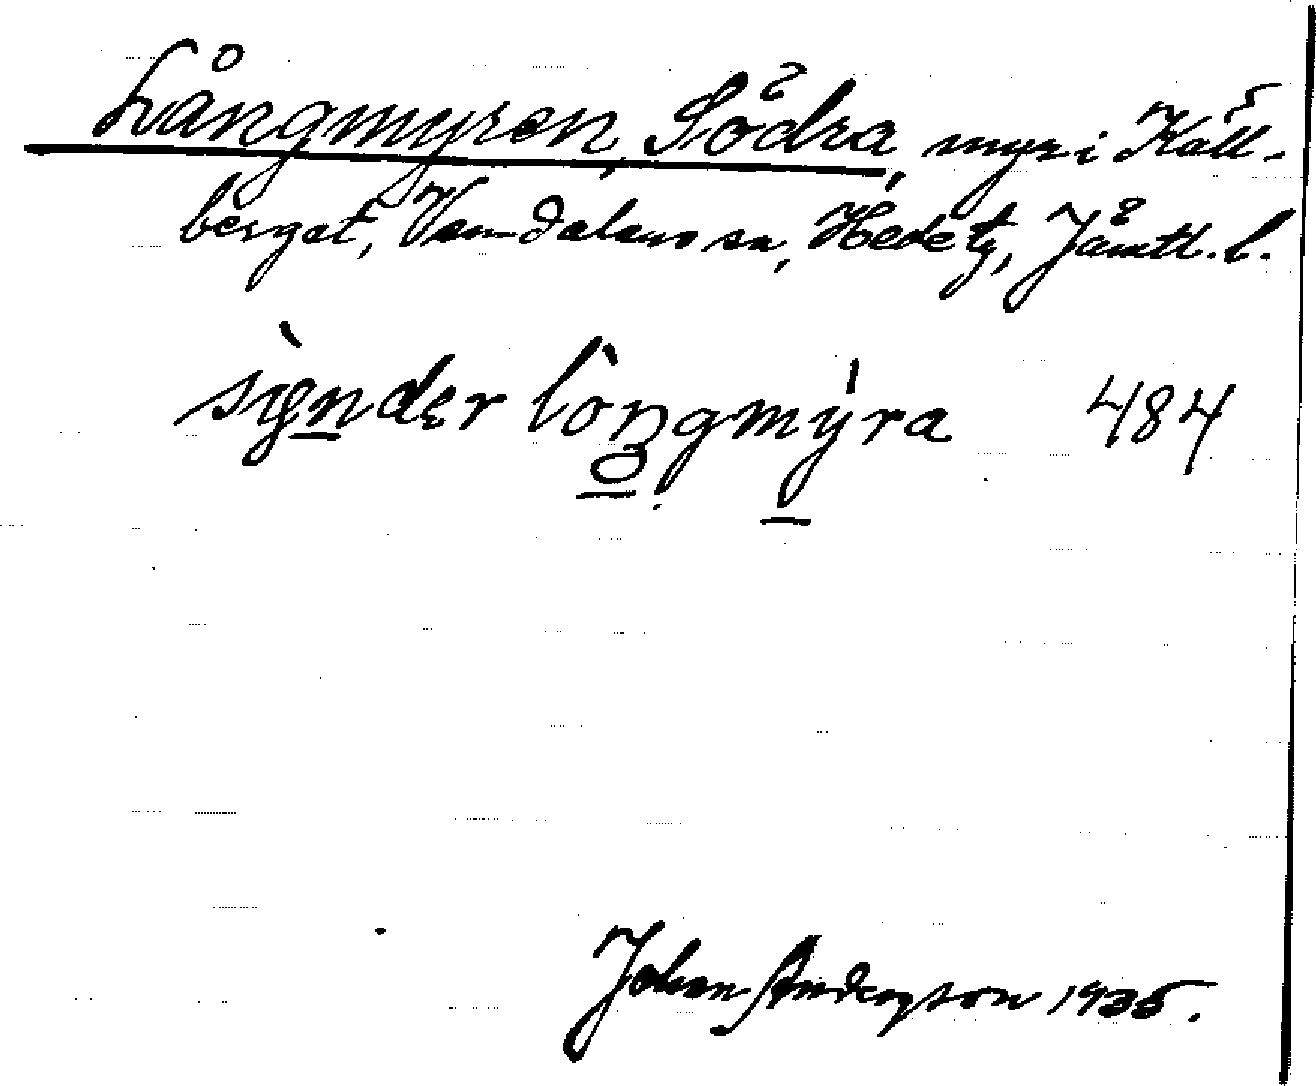 Långmyren, Södra, myr i Käll-
berget, Vemdalens sn, Hede tg, Jämtl. l.
sỳnder lòngmýra 484
Johan Anderzson 1935.